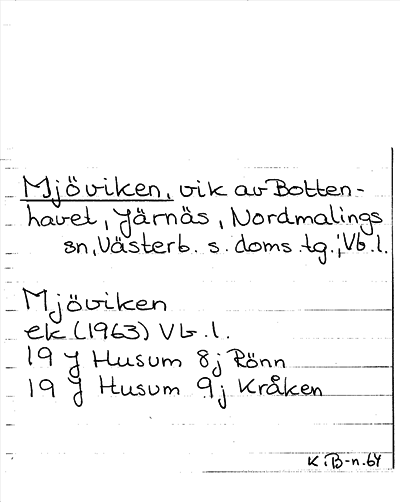 Mjöviken, vik av Botten-
havet, Järnäs, Nordmalings
sn, Västerb. s. doms.tg.; Vb.l.
Mjöviken
ek (1963) Vb.l.
19 J Husum 8j Rönn
19 J Husum 9j Kråken
K.B-n.64